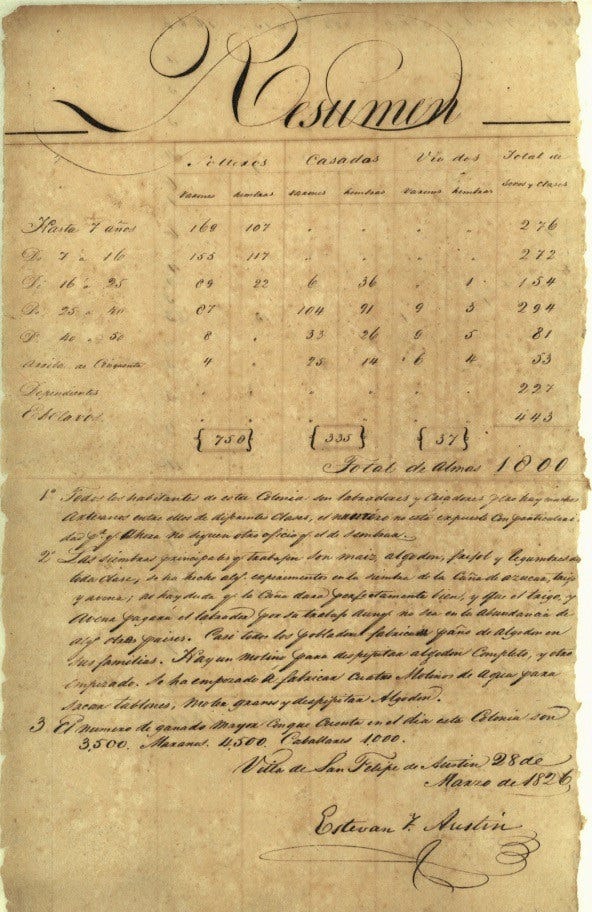 Resumen
Solteros Casadas Viudos Total de
varones hembras varones hembras varones hembras Secsos y Clases
Hasta 7 años 169 107 " " " " 276
De 7 a 16 155 117 " " " " 272
De 16 a 25 89 22 6 36 " 1 154
De 25 a 40 87 " 104 91 9 3 294
De 40 a 50 8 " 33 26 9 5 81
Arriba de Cinquenta 4 " 25 14 6 4 53
Dependientes " " " " " " 227
Esclavos " " " " " " 443
{750} {335} {37}
Total de Almas 1800
1º Todos los habitantes de esta Colonia son labradores y Criadores y hay muchos
Artesanos entre ellos de diferentes Clases, el numero no está expuesto Con particulari
dad pr. qe. ahora no siguen otro oficio qe. el de Sembrar.
2º Las siembras principales qe. trabajan son maiz, algodon, frisol y legumbres de
toda clase, se ha hecho algs. experimentos en la siembra de la Caña de azucar, trigo
y avena; no hay duda qe. la Caña dará perfectamente bien, y que el trigo, y
Avena pagará el labrador por su trabajo aunqe. no sea en la Abundancia de
algs. otros paises. Casi todos los pobladores fabrican paño de Algodon en
sus familias. Hay un molino para despepitar algodon Completo, y otro
empezado. Se ha empezado a fabricar Cuatro Molinos de Agua para
sacar tablones, moler granos y despepitar Algodon.
3 El numero de ganado Mayor Conque Cuenta en el dia esta Colonia son
3,500. Maranos. 4,500. Caballares 1000.
Villa de San Felipe de Austin 28 de
Marzo de 1826
Estevan F. Austin